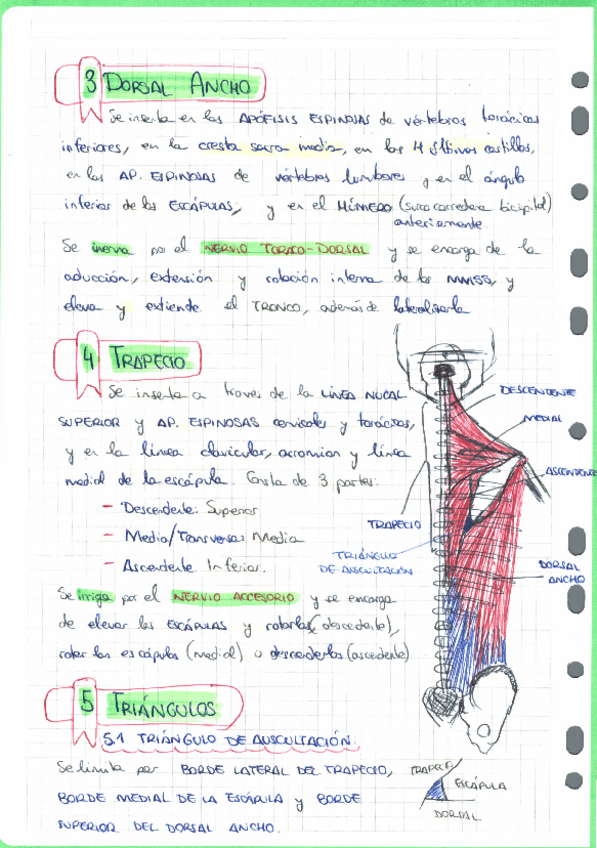 3 DORSAL ANCHO
Se inserta en las APÓFISIS ESPINOSAS de vértebras torácicas
inferiores, en la cresta sacra media, en las 4 últimas costillas,
en las AP. ESPINOSAS de vértebras lumbares y en el ángulo
inferior de las ESCÁPULAS, y en el HÚMERO (surco corredera bicipital)
anteriormente.
Se inerva por el NERVIO TORACO-DORSAL y se encarga de la
aducción, extensión y rotación interna de los MMSS, y
eleva y extiende el TRONCO, además de lateralizarla
4 TRAPECIO
Se inserta a través de la LÍNEA NUCAL
SUPERIOR y AP. ESPINOSAS cervicales y torácicas,
y en la línea clavicular, acromion y línea
medial de la escápula. Consta de 3 partes:
- Descendente: Superior
- Media/Transversa: Media
- Ascendente: Inferior.
Se irriga por el NERVIO ACCESORIO y se encarga
de elevar las ESCÁPULAS y rotarlas (descendente),
rotar las escápulas (medial) o descenderlas (ascendente)
DESCENDENTE
MEDIAL
ASCENDENTE
TRAPECIO
TRIÁNGULO
DE AUSCULTACIÓN
DORSAL
ANCHO
5 TRIÁNGULOS
5.1 TRIÁNGULO DE AUSCULTACIÓN:
Se limita por BORDE LATERAL DEL TRAPECIO,
BORDE MEDIAL DE LA ESCÁPULA y BORDE
SUPERIOR DEL DORSAL ANCHO.
TRAPECIO
ESCÁPULA
DORSAL